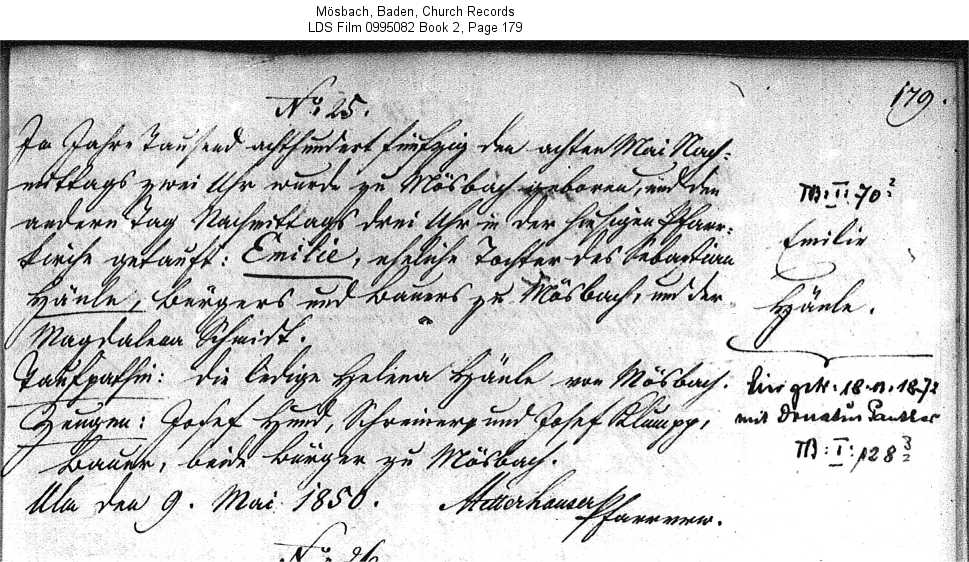 Mösbach, Baden, Church Records
LDS Film 0995082 Book 2, Page 179
179.
No. 25.
Im Jahre Tausend achthundert fünfzig den achten Mai Nach-
mittags zwei Uhr wurde zu Mösbach geboren, und den
andern Tag Nachmittags drei Uhr in der hiesigen Pfarr-
kirche getauft: Emilie, eheliche Tochter des Sebastian
Hänle, Bürgers und Bauers zu Mösbach, und der
Magdalena Schmidt.
Taufpathin: die ledige Helena Hänle von Mösbach.
Zeugen: Josef Hund, Schreiner, und Josef Klumpp,
Bauer, beide Bürger zu Mösbach.
Ulm den 9. Mai 1850.
Pfarrverw.
TB: I: 70 2
Emilie
Hänle.
mit Donatus Panther
TB: I: 128 3/2
No. 26